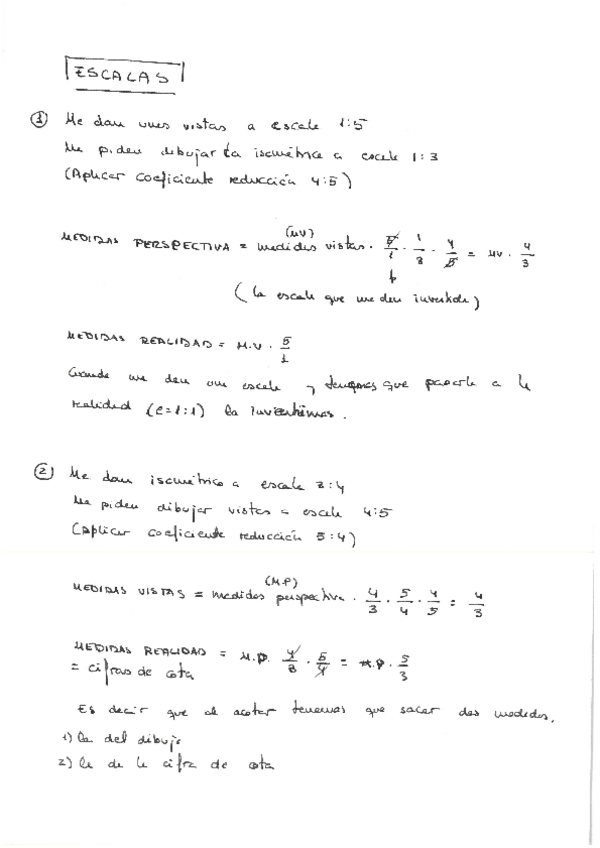 ESCALAS
① Me dan unas vistas a escala 1:5
Me piden dibujar la isométrica a escala 1:3
(Aplicar coeficiente reducción 4:5)
(MV)
MEDIDAS PERSPECTIVA = medidas vistas · 5/1 · 1/3 · 4/5 = MV · 4/3
(la escala que me dan invertida)
MEDIDAS REALIDAD = M.V · 5/1
Cuando me dan una escala y tenemos que pasarla a la
realidad (e=1:1) la invertimos.
② Me dan isométrica a escala 3:4
Me piden dibujar vistas a escala 4:5
(Aplicar coeficiente reducción 5:4)
(M.P)
MEDIDAS VISTAS = medidas perspectiva · 4/3 · 5/4 · 4/5 = 4/3
MEDIDAS REALIDAD = M.P. 4/3 · 5/4 = M.P · 5/3
= cifras de cota
Es decir que al acotar tenemos que sacar dos medidas.
1) la del dibujo
2) la de la cifra de cota